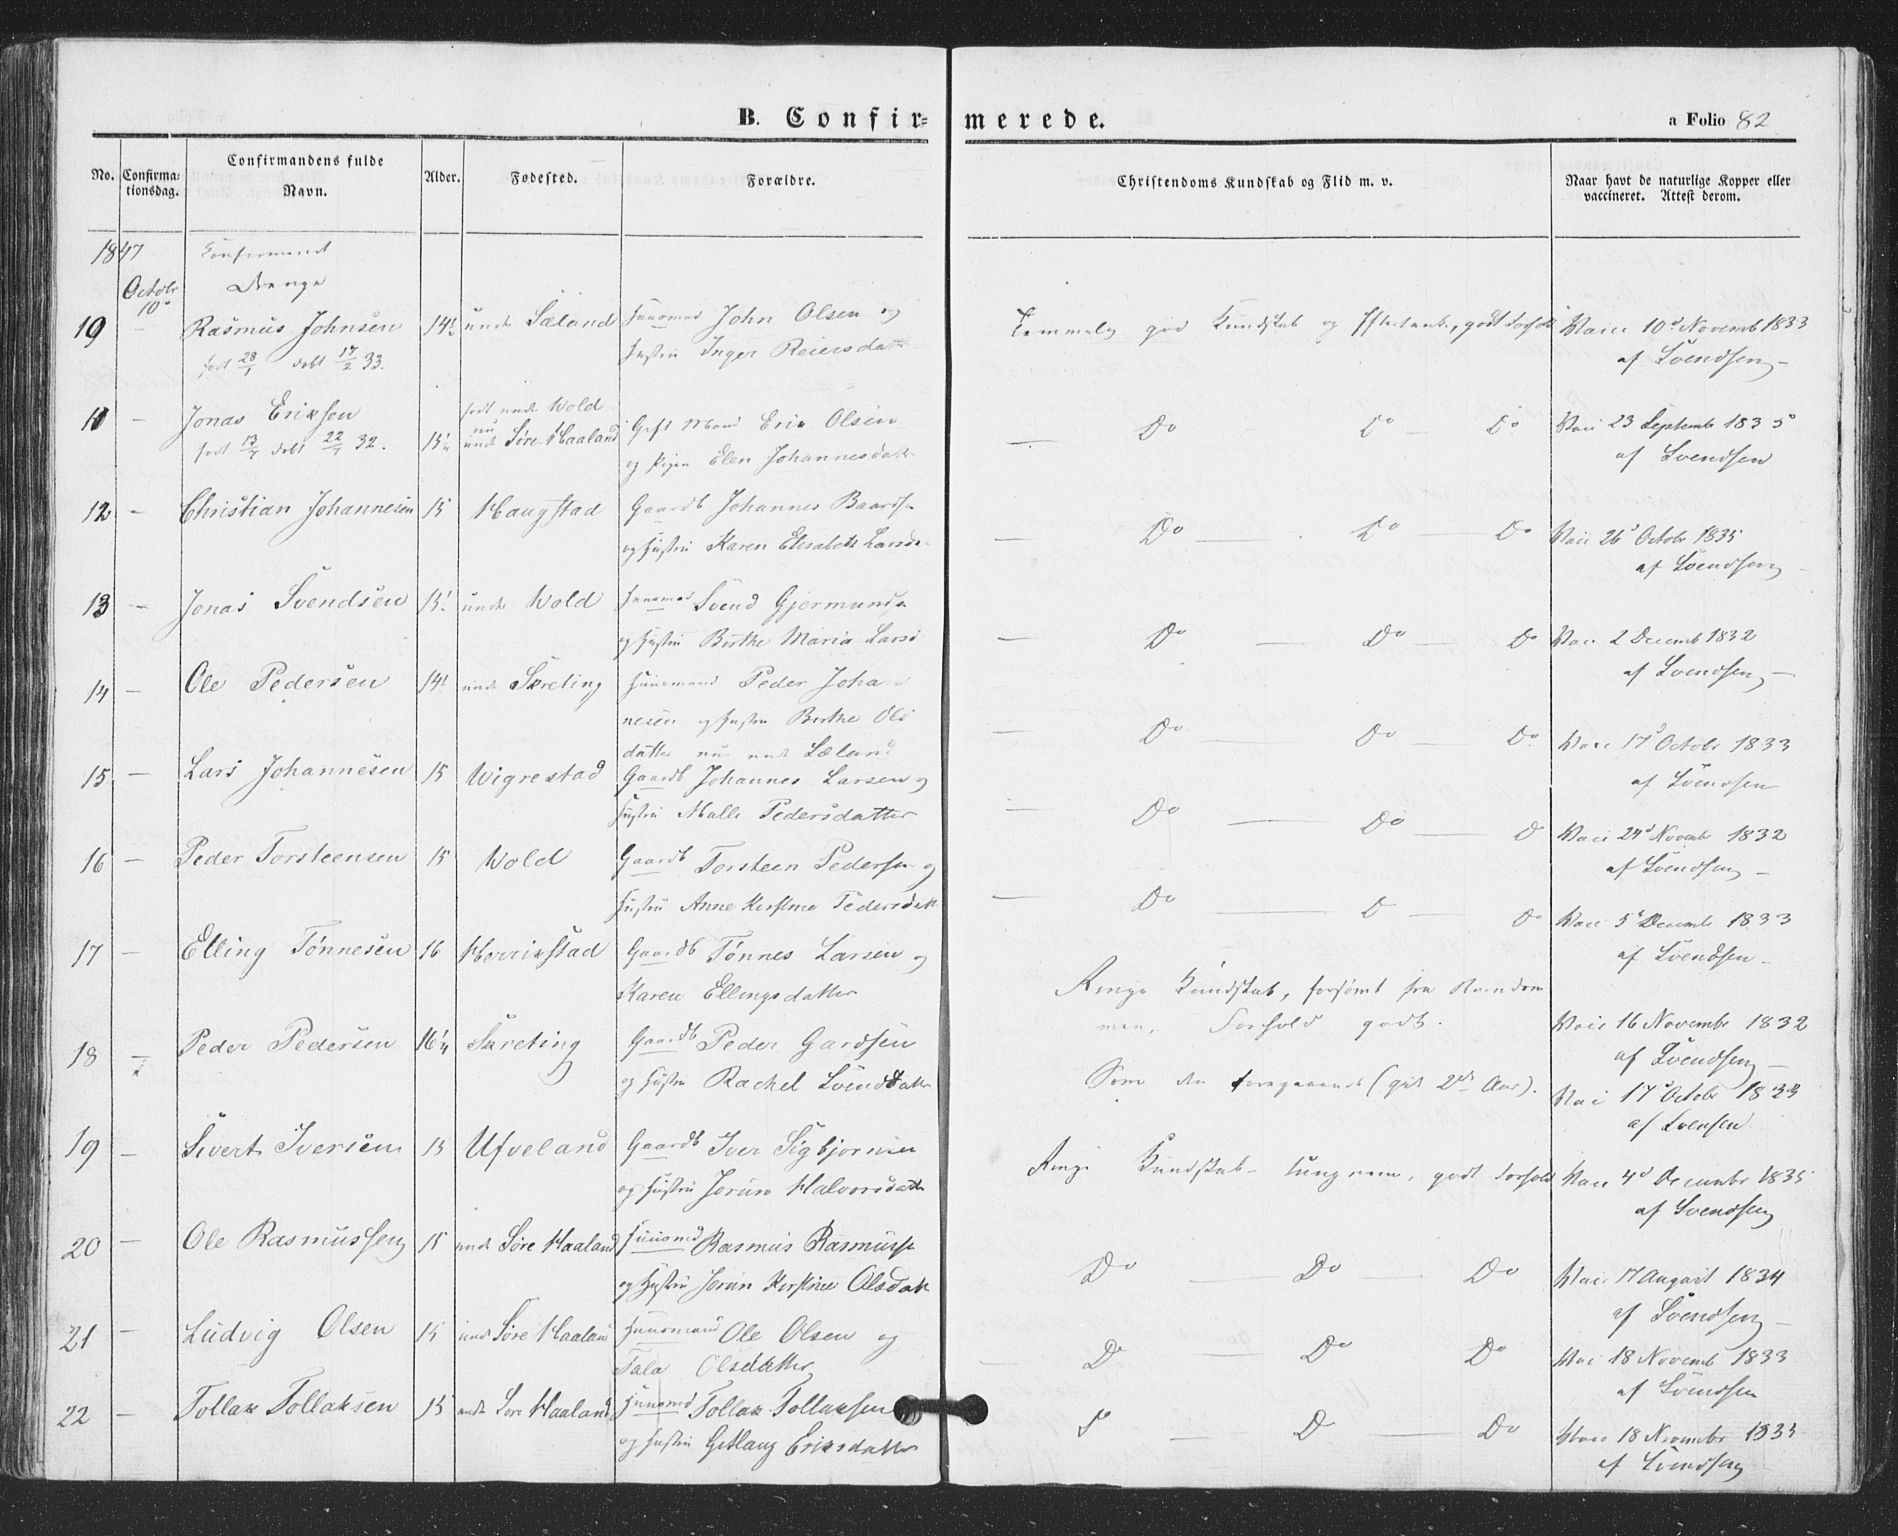 B. Confirmerede.
a Folio 82
No. Confirmationsdag. Confirmandens fulde Navn. Alder. Fødested. Forældre. Christendoms Kundskab og Flid m. v. Naar havt de naturlige Kopper eller vaccineret. Attest derom.
1847 Confirmered
Octobr Drenge
10d
10 — Rasmus Johnsen 14½ unde Sæland Huusmd John Olsen og
født 28/1 døbt 17/2 33. Hustru Inger Reiersdatt
Temmelig god Kundskab og Eftertanke, godt Forhold Vacc 10d Novemb 1833
af Svendsen —
11 — Jonas Eriksen født unde Wold Gift Mand Erik Olsen
født 13/7 døbt 22/7 32. 15¼ nu unde Søre Haaland og Pigen Elen Johannesdatt
— Do — Do — Do Vacc 23 Septembr 1835
af Svendsen
12 — Christian Johannesen 15 Haugstad Gaardb Johannes Baards
og Hustru Karen Elisabeth Larsd
— Do — Do — Do Vacc 26d Octobr 1835
af Svendsen —
13 — Jonas Svendsen 15½ unde Wold Huusmd Svend Gjermunds
og Hustru Birthe Maria Larsd
— Do — Do — Do Vacc 2 Decemb 1832
af Svendsen —
14 — Ole Pedersen 14½ unde Skreting Huusmand Peder Johan
nesen og Hustru Birthe Ols
datter nu unde Sæland
— Do — Do — Do Vacc 17d Octobr 1833
af Svendsen
15 — Lars Johannesen 15 Wigrestad Gaardb Johannes Larsen og
Hustru Malle Pedersdatter
— Do — Do — D Vacc 24d Novemb 1832
af Svendsen —
16 — Peder Torsteensen 15 Wold Gaardb Torsteen Pedersen og
Hustru Anne Kirstine Pedersdatt
— Do — D — Do Vacc 5d Decemb 1833
af Svendsen —
17 — Elling Tønnesen 16 Herrikstad Gaardb Tønnes Larsen og
Karen Ellingsdatter
Ringe Kundskab, forsømt fra Barndom
men, Forhold godt. Vacc 16 Novembr 1832
af Svendsen —
18 — Peder Pedersen 16¼ Skreting Gaardb Peder Gardsen
og Hustru Rachel Svendsdatter
Som den foregaaende (gik 2de Aar). Vacc 17d Octobr 1833
af Svensen
19 — Sivert Iversen 15 Ufveland Gaardb Iver Sigbjornsen
og Hustru Jorun Halvorsdatt
Ringe Kundskab — tungnem, godt Forhold Vacc 4d Decembr 1835
af Svendsen
20 — Ole Rasmussen 15 unde Søre Haaland Huusmd Rasmus Rasmuss
og Hustru Jorun Kirstine Olsdatt
Do — Do — Do Vacc 17 August 1834
af Svendsen —
21 — Ludvig Olsen 15 unde Søre Haaland Huusmand Ole Olsen og
Tala Olsdatter
— D — Do — Do Vacc 18 Novemb 1833
af Svendsen
22 — Tollak Tollaksen 15 unde Søre Haaland Huusmd Tollak Tollaksen
og Hustru Gitlaug Eriksdatter
D — D — Do Vacc 18 Novembr 1833
af Svendsen